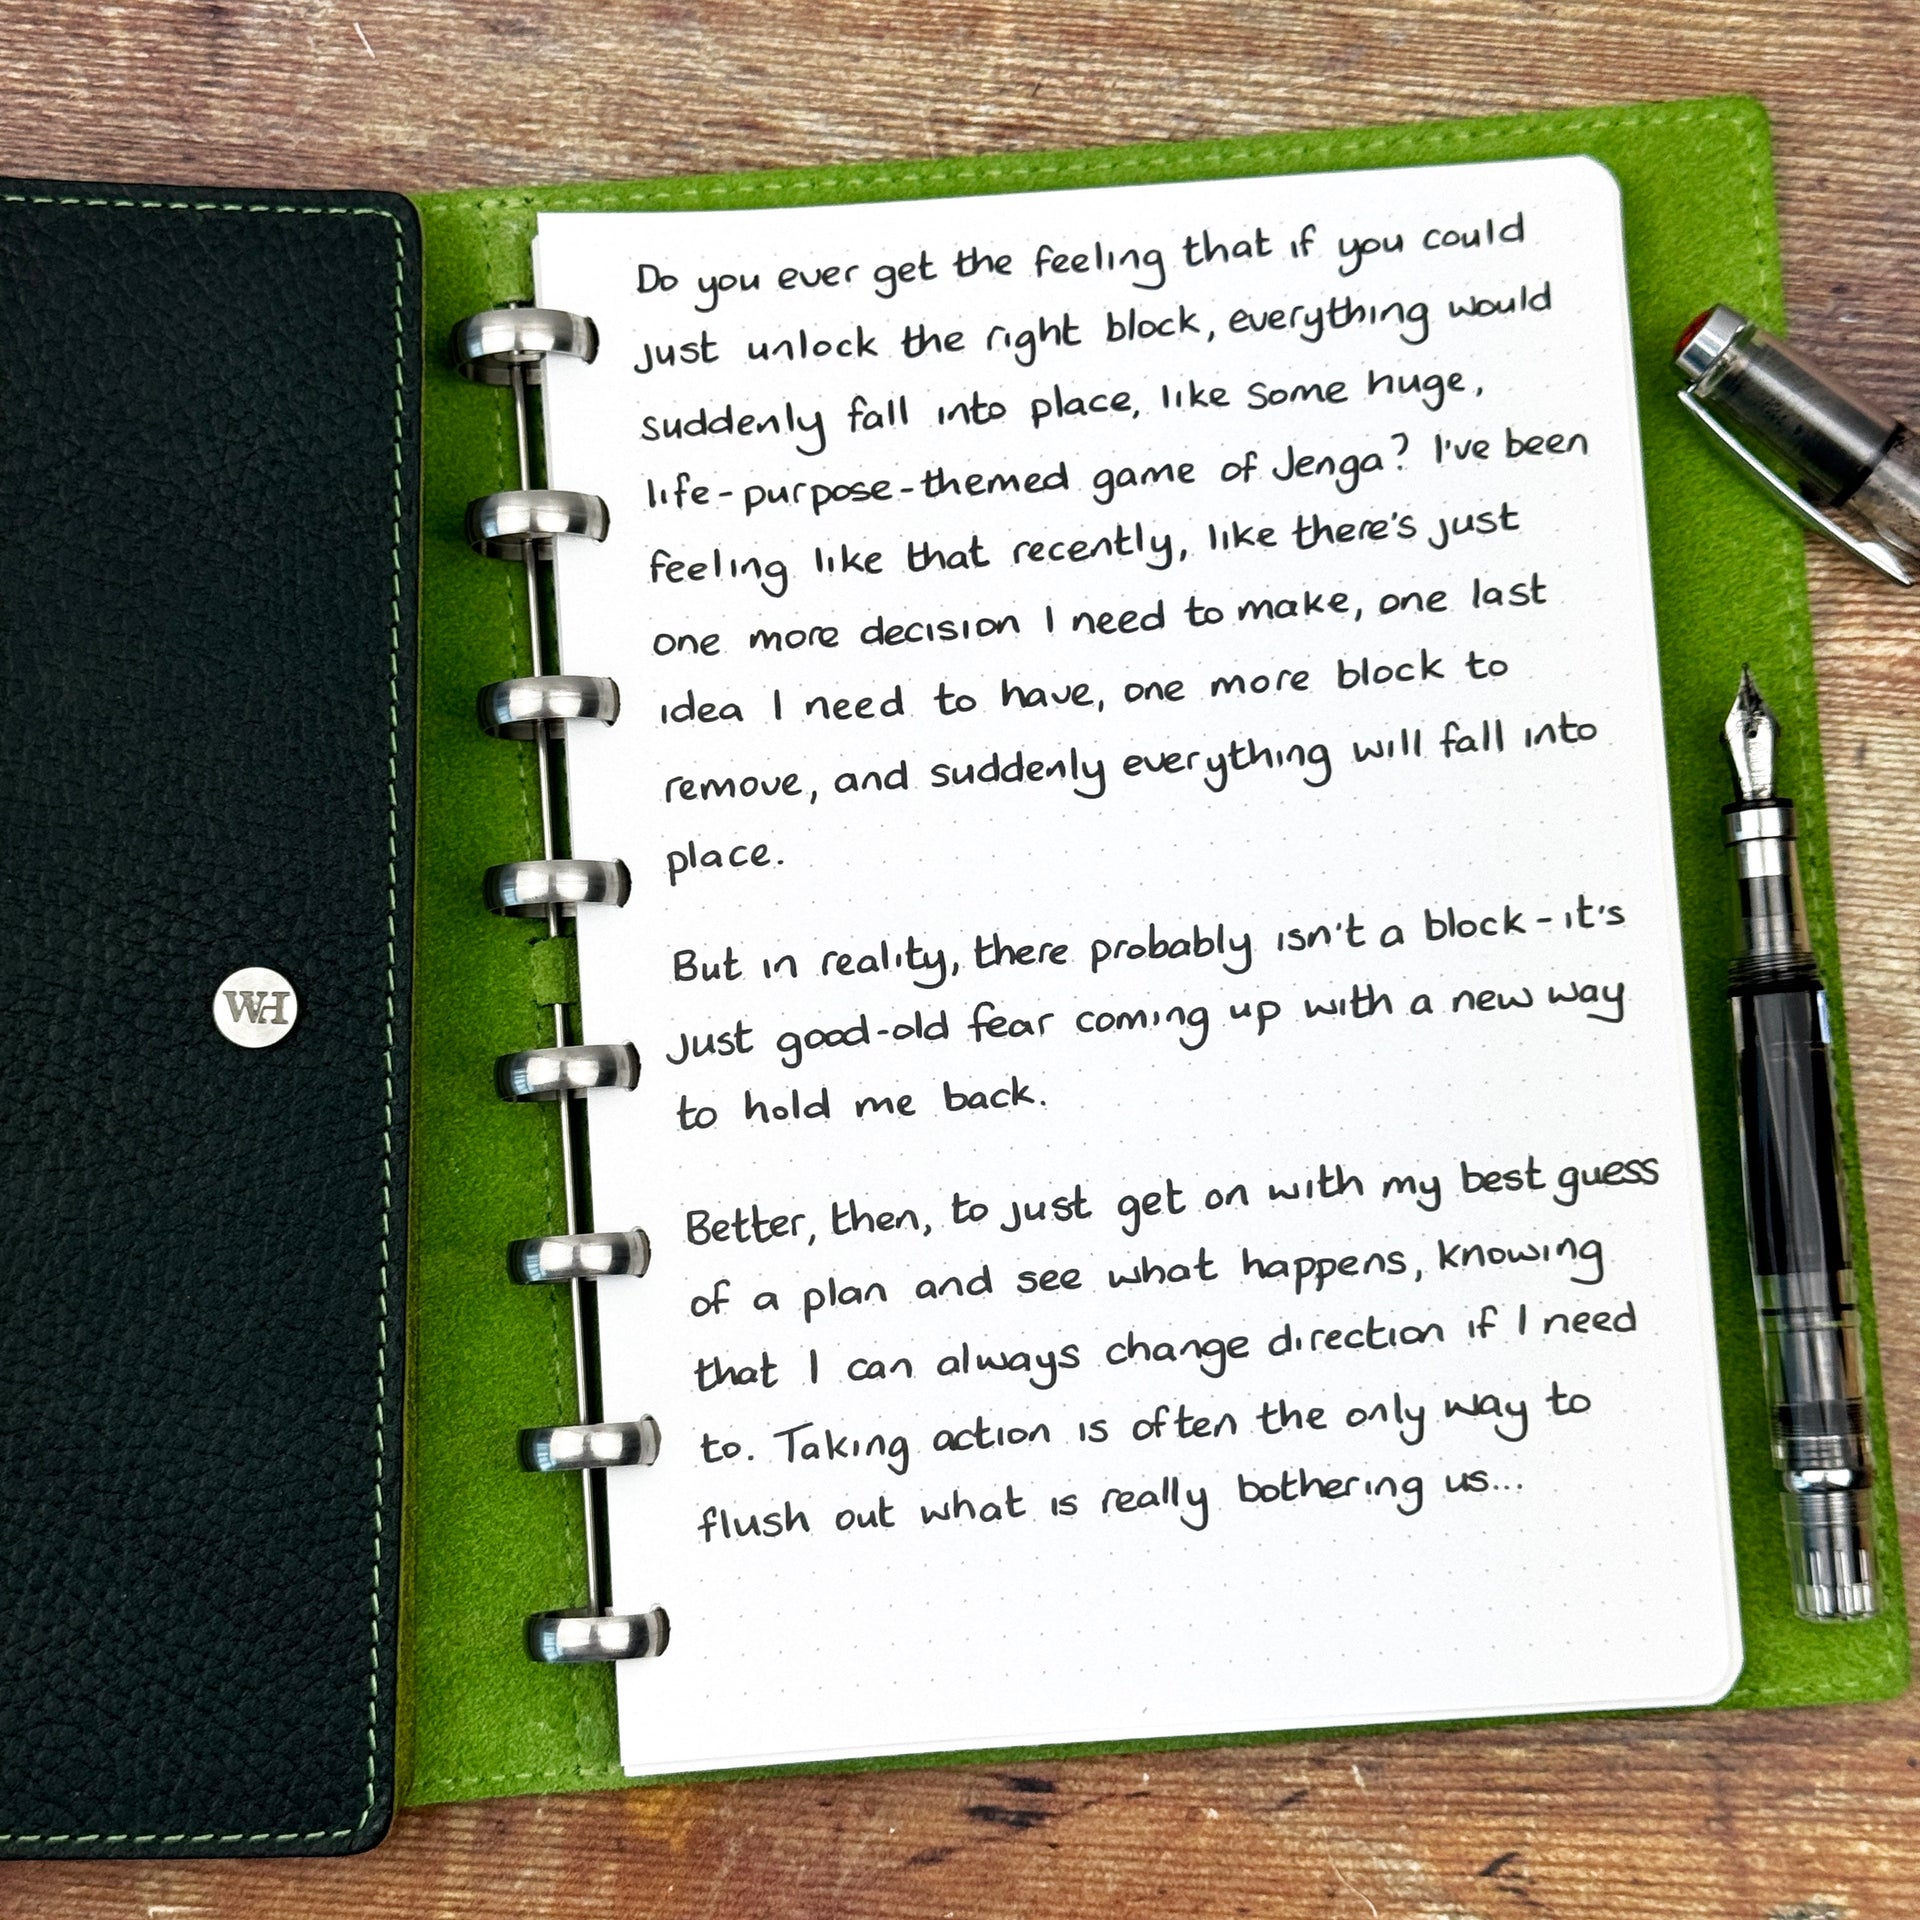 Do you ever get the feeling that if you could
just unlock the right block, everything would
suddenly fall into place, like some huge,
life-purpose-themed game of Jenga? I've been
feeling like that recently, like there's just
one more decision I need to make, one last
idea I need to have, one more block to
remove, and suddenly everything will fall into
place.
But in reality, there probably isn't a block - it's
just good-old fear coming up with a new way
to hold me back.
Better, then, to just get on with my best guess
of a plan and see what happens, knowing
that I can always change direction if I need
to. Taking action is often the only way to
flush out what is really bothering us...
WH